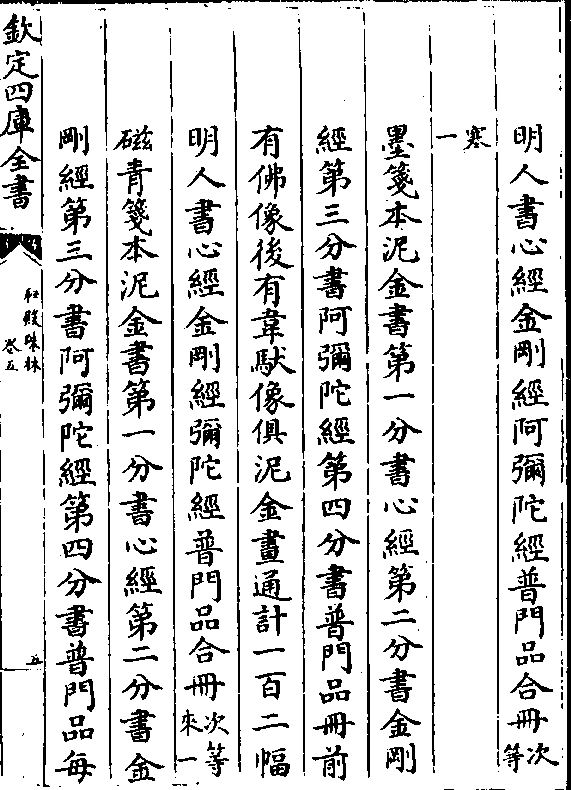 明人書心經金剛經阿彌陀經普門品合冊次等
寒一
墨箋本泥金書第一分書心經第二分書金剛
經第三分書阿彌陀經第四分書普門品冊前
有佛像後有韋馱像俱泥金畫通計一百二幅
明人書心經金剛經彌陀經普門品合冊次等來一
磁青箋本泥金書第一分書心經第二分書金
剛經第三分書阿彌陀經第四分書普門品每
欽定四庫全書
秘殿珠林
卷五
五